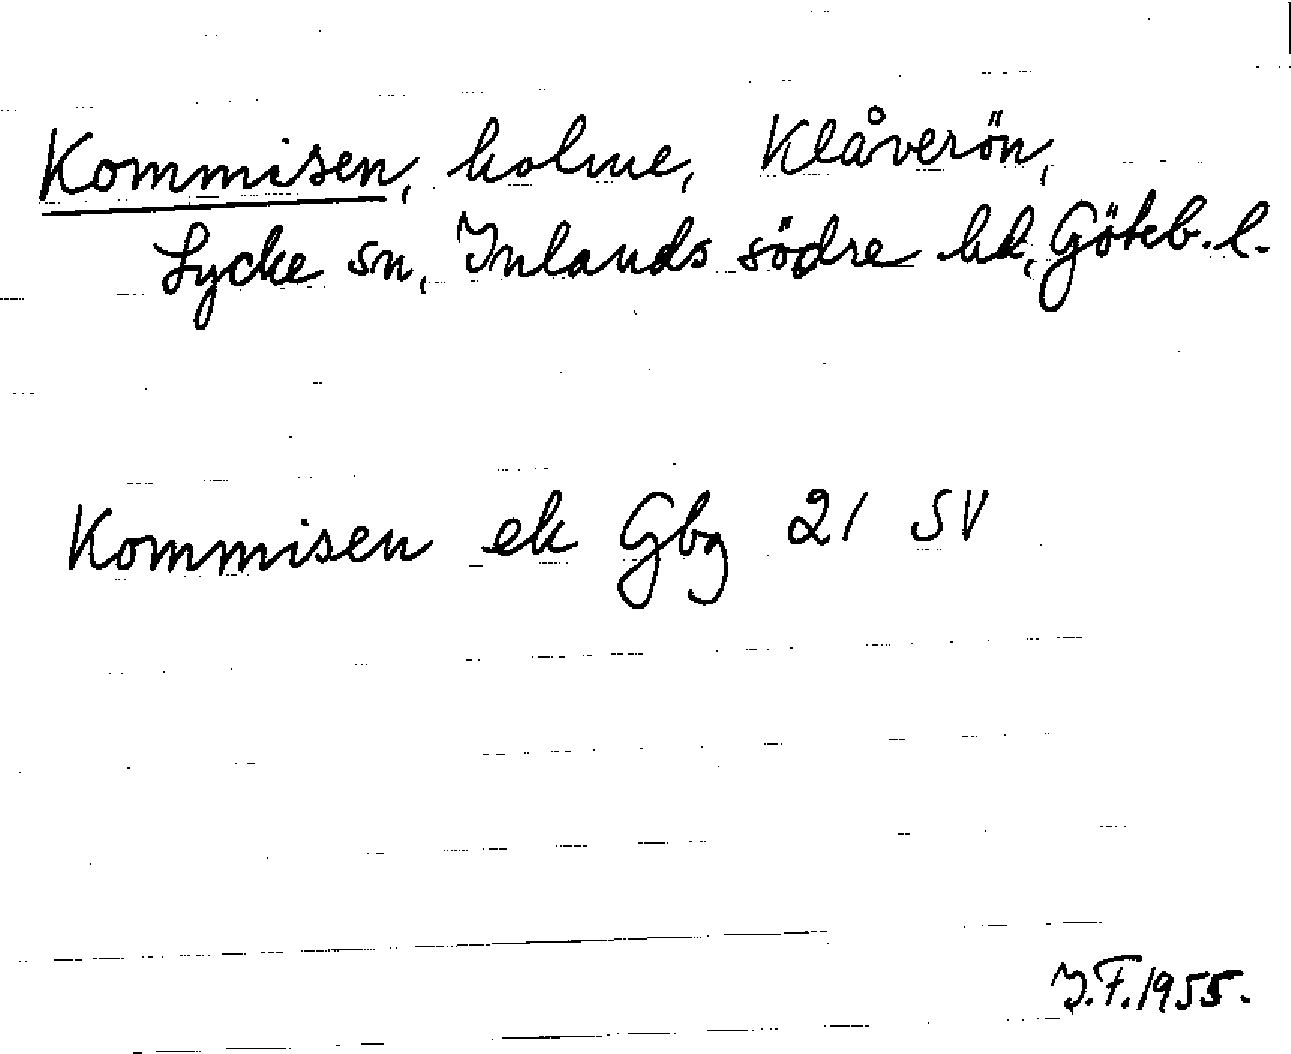 Kommisen, holme, Klåverön,
Lycke sn, Inlands södre hd, Göteb. l.
Kommisen ek Gbg 21 SV
I.F. 1955.